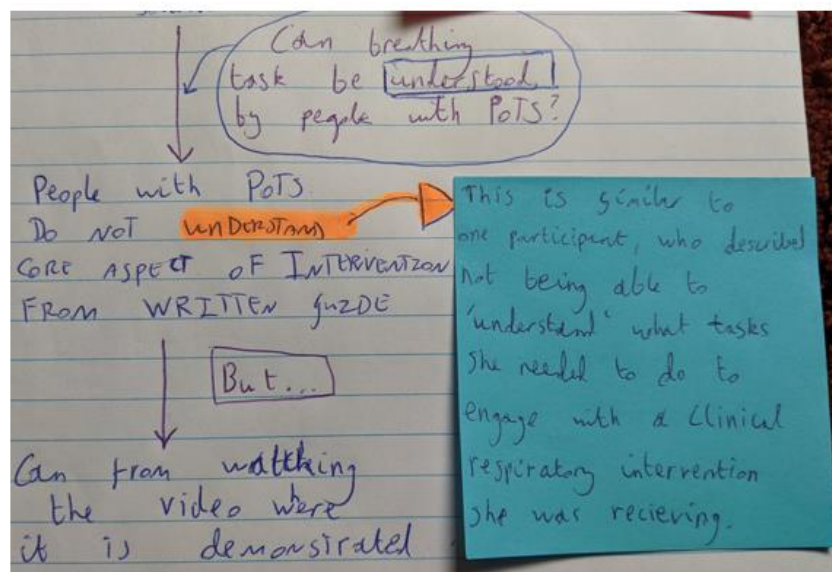 Can breathing
task be understood
by people with PoTS?
People with PoTS
Do NOT UNDERSTAND
CORE ASPECT OF INTERVENTION
FROM WRITTEN GUIDE
But...
Can from watching
the video were
it is demonstrated
This is similar to
one participant, who described
not being able to
'understand' what tasks
she needed to do to
engage with a Clinical
respiratory intervention
she was recieving.